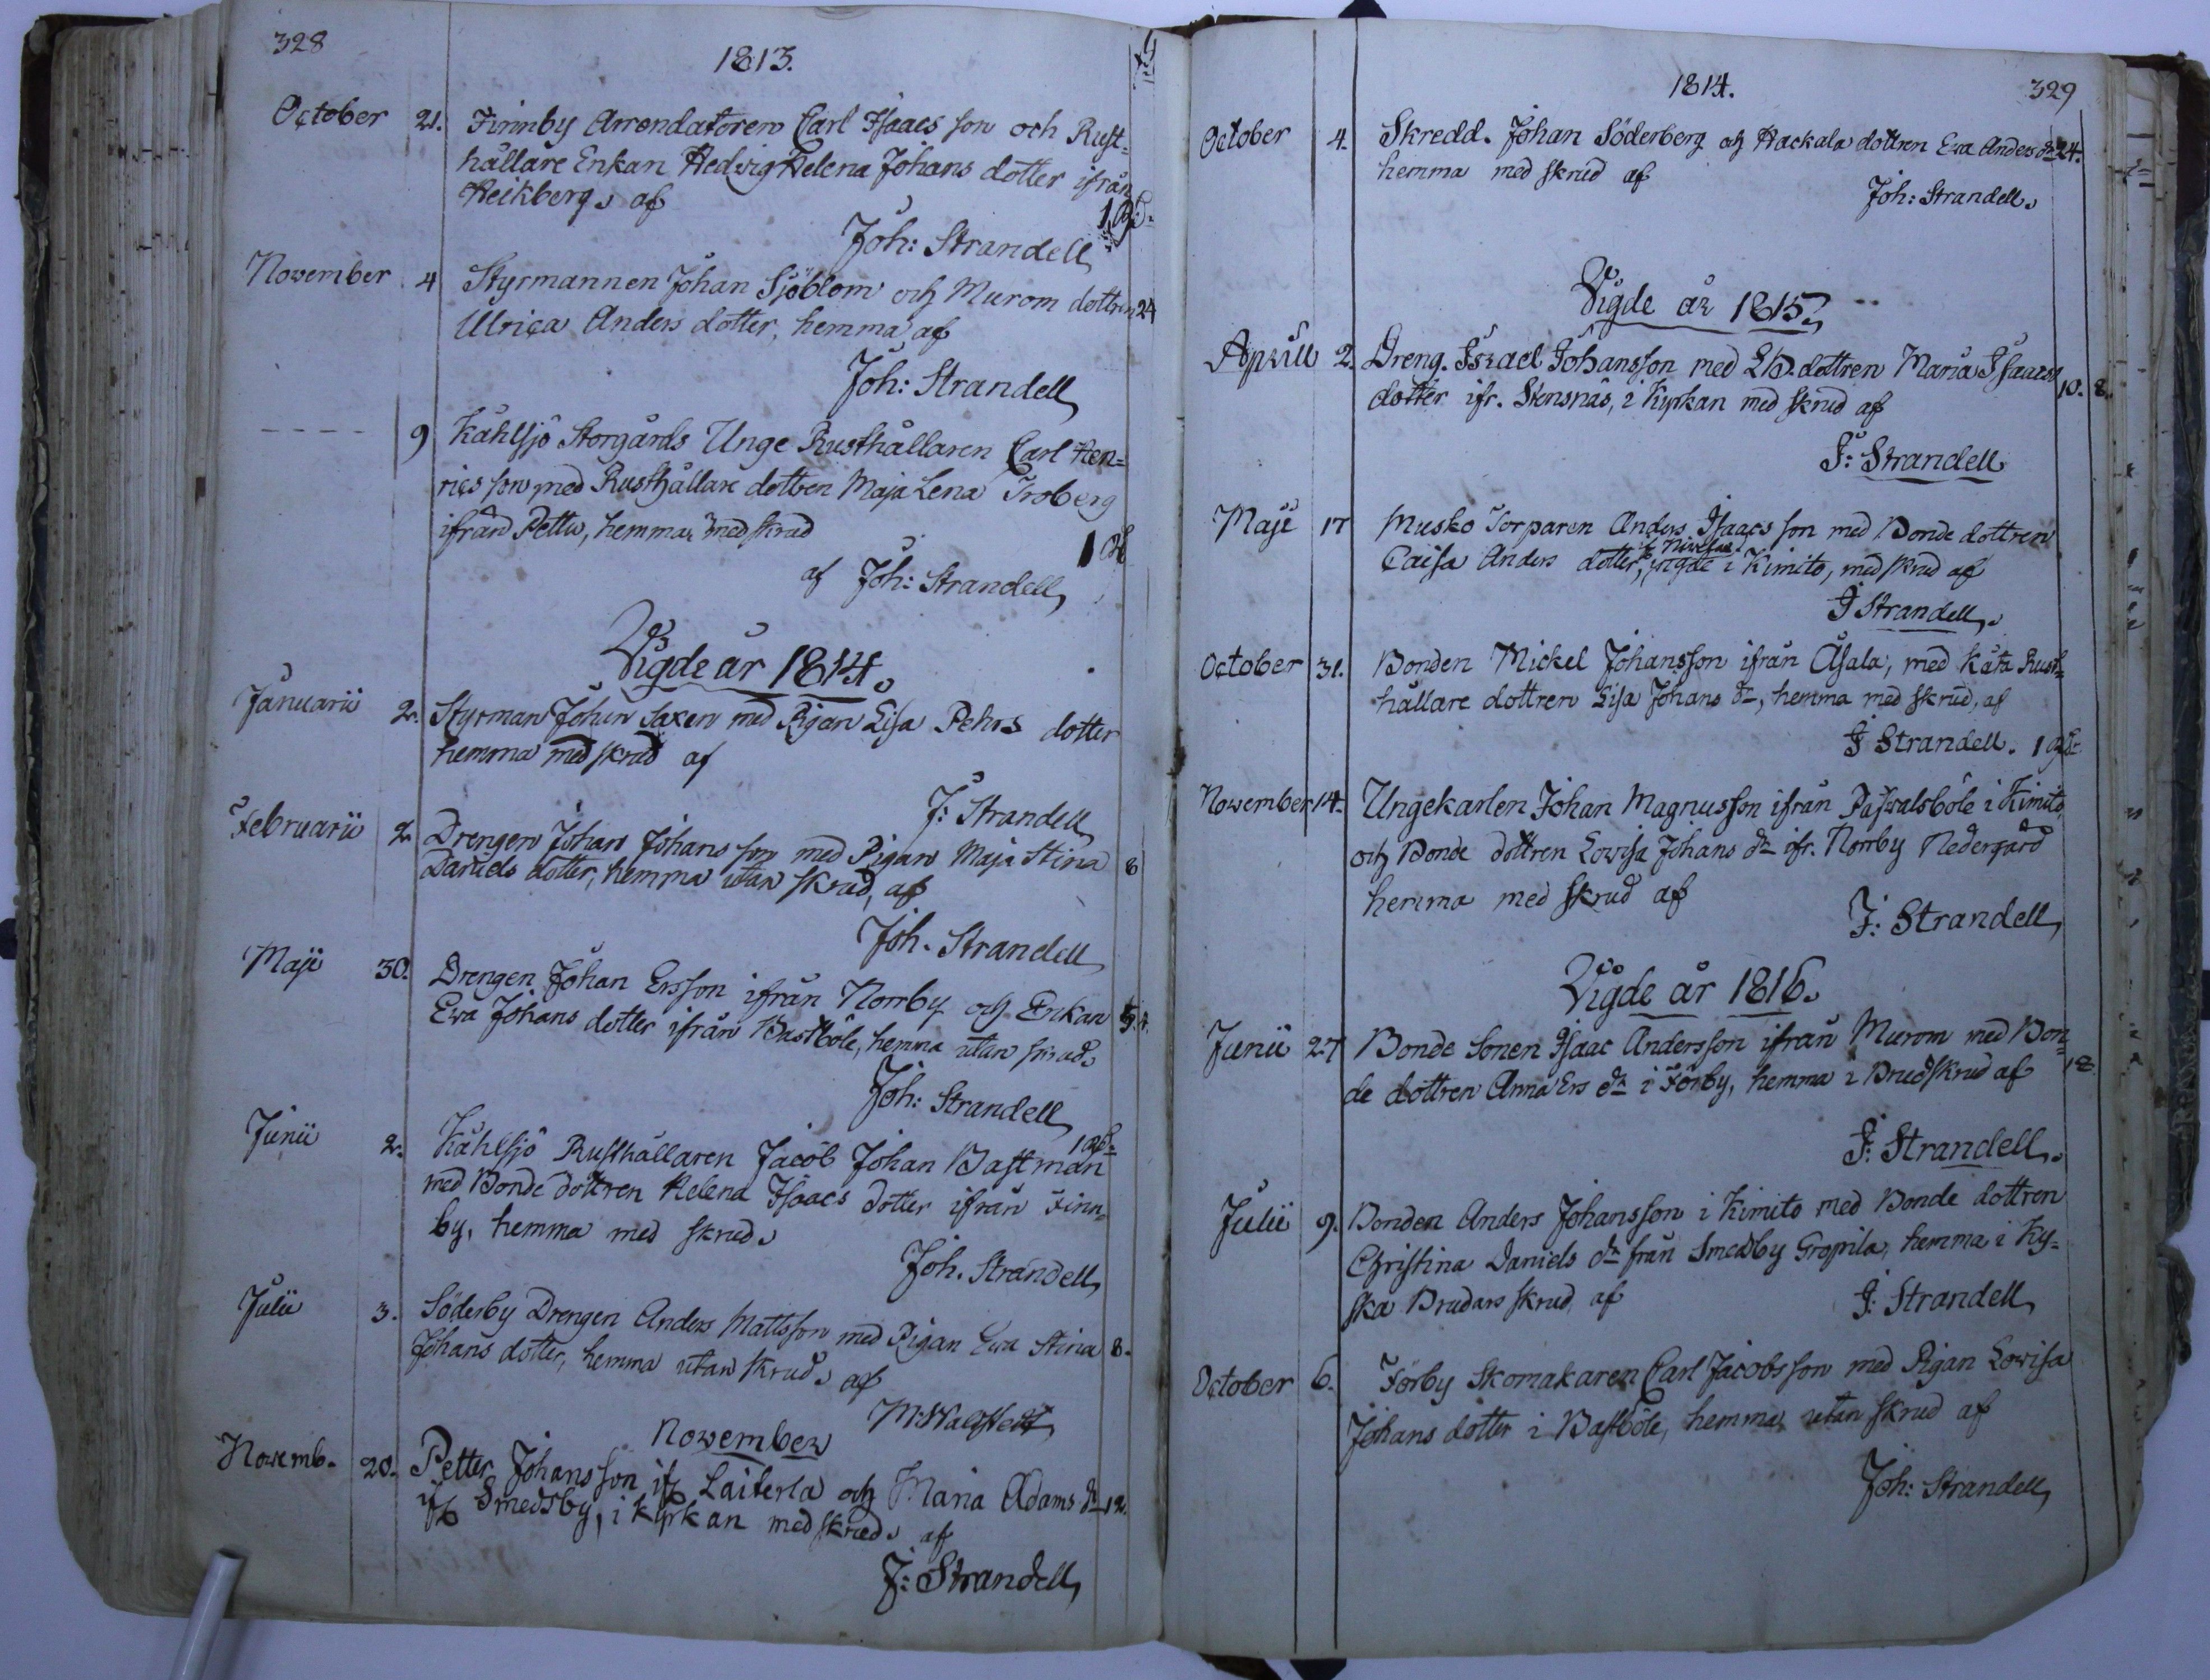 328
1813.
October 21. Finnby Arrendatoren Carl Isaacs son och Rust=
hållare Enkan Hedvig Helena Johans dotter ifrån
Reikberg, af
Joh: Strandell
November 4 Styrmannen Johan Sjöblom och Murom dottren 24
Ulrica Anders dotter, hemma af
Joh: Strandell
9 Kåhlsjö Storgårds Unge Rusthållaren Carl Hen=
rics son med Rusthållare dottren Maja Lena Troberg
ifrån Pettu, hemma, med skrud
af Joh: Strandell
Vigde år 1814.
Januarii 2. Styrman Johan Saxen med Pigan Lisa Pehrs dotter
hemma med skrud af
J: Strandell
Februarii 2 Drengen Johan Johans son med Pigan Maja Stina 8
Daniels dotter, hemma utan skrud, af
Joh. Strandell
Maji 30. Drengen Johan Ersson ifrån Norrby och Enkan
Ewa Johans dotter ifrån Bastböle, hemma utan skrud.
Joh: Strandell
Junii 2. Kåhlsjö Rusthållaren Jacob Johan Bastman
med Bonde dottren Helena Isaacs dotter ifrån Finn=
by, hemma med skrud.
Joh. Strandell
Julii 3. Söderby Drengen Anders Mattsson med Pigan Ewa Stina 8.
Johans dotter, hemma utan skrud. af
November
Novemb. 20. Petter Johansson ifr Laiterla och Maria Adams dr 12.
ifr Smedsby, i kyrkan med skrud. af
J: Strandell
1814. 329
October 4. Skredd. Johan Söderberg och Hackala dottren Ewa Anders dr 24.
hemma med skrud af
Joh: Strandell.
Vigde år 1815.
Aprill 2. Dreng. Israel Johansson med dottren Maria Isaacs
dotter ifr. Stensnäs, i Kyrkan med skrud af 10. 8.
J: Strandell
Maji 17 Musko Torparen Anders Isaacs son med Bonde dottren
Caisa Anders dotter, vigde i Kimito, med skrud af
J Strandell.
October 31. Bonden Mickel Johansson ifrån Åsala, med Kåta Rust=
hållare dottren Lisa Johans dr, hemma med skrud, af
J Strandell.
November 14. Ungekarlen Johan Magnusson ifrån Påswalsböle i Kimito,
och Bonde dottren Lowisa Johans dr ifr. Norrby Nedergård
hemma med skrud af
J: Strandell
Vigde år 1816.
Junii 27 Bonde Sonen Isaac Andersson ifrån Murom med Bon=
de dottren Anna Ers dr i Förby, hemma i Brudskrud af 18
J: Strandell.
Julii 9. Bonden Anders Johansson i Kimito med Bonde dottren
Christina Daniels dr från Smedsby Gropila, hemma i Ky=
ska Brudars skrud, af
J: Strandell
October 6. Förby Skomakaren Carl Jacobsson med Pigan Lowisa
Johans dotter i Bastböle, hemma, utan skrud af
Joh: Strandell